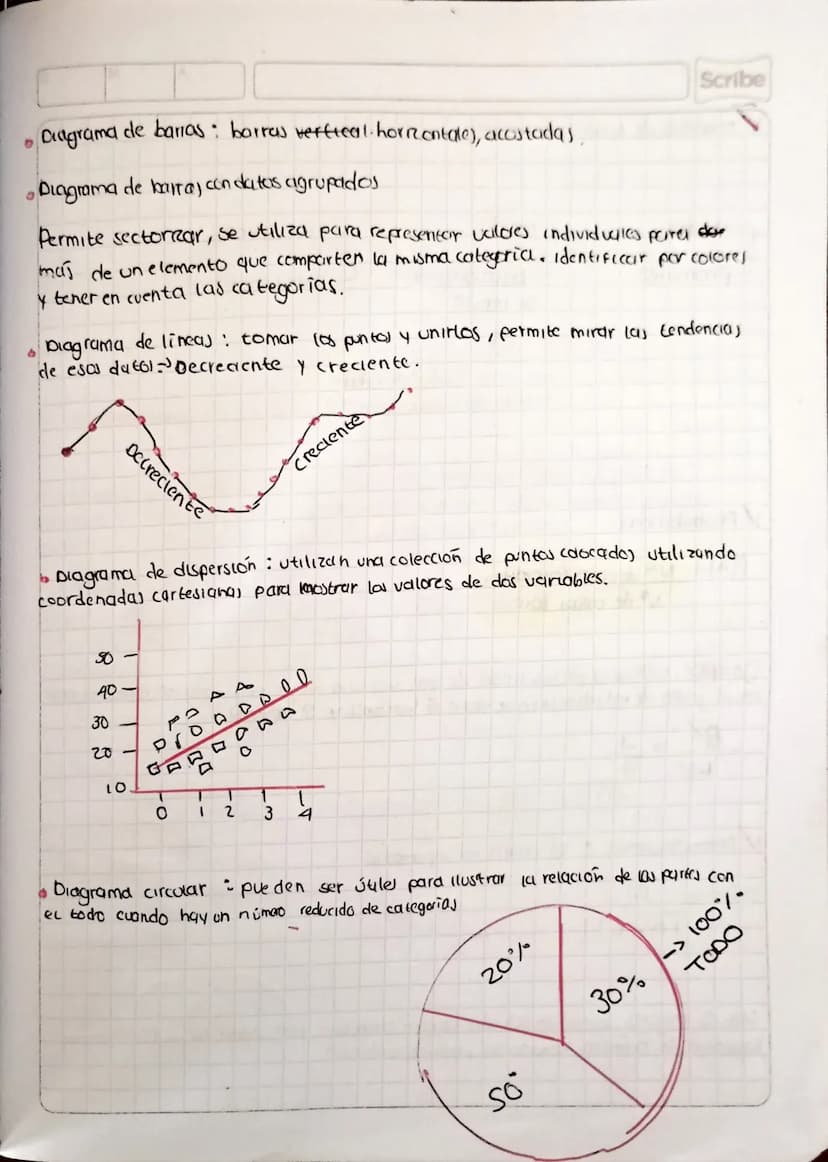 Scribe
Diagrama de barras: barras vertical. horizontales, acostadas.
Diagrama de barras con datos agrupados
Permite sectorizar, se utiliza para representar valores individuales para
más de un elemento que comparten la misma categoria. Identificar por colores
y tener en cuenta las categorías.
Diagrama de líneas: tomar los puntos y unirlos, permite mirar las tendencias
de esos datos => Decreciente y creciente.
Decreciente
Creciente
Diagrama de dispersión: utilizan una colección de puntos colocados utilizando
coordenadas cartesianas para mostrar los valores de dos variables.
50
40
30
20
10
0 1 2 3 4
Diagrama circular: pueden ser útiles para ilustrar la relación de las partes con
el todo cuando hay un número reducido de categorías
20%
30%
-> 100%
TODO
50